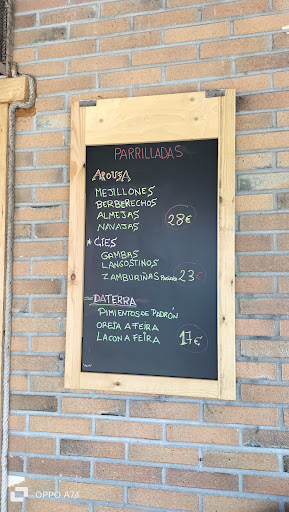 PARRILLADAS
AROUSA
MEJILLONES
BERBERECHOS
ALMEJAS
NAVAJAS
28€
* CíES
GAMBAS
LANGOSTINOS
ZAMBURIÑAS
23€
DATERRA
PIMIENTOS DE PADRÓN
OREJA A FEIRA
LACON A FEIRA
17€
OPPO A74